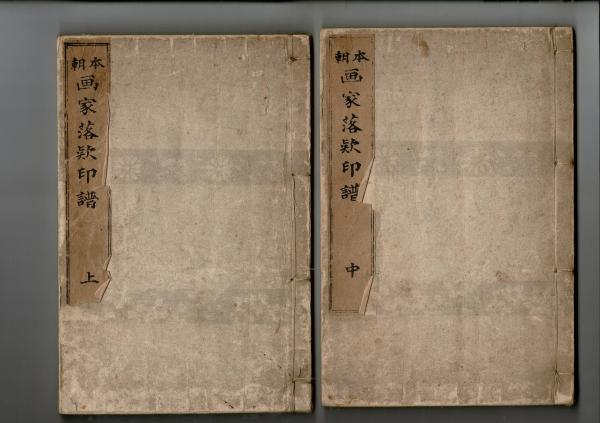 本朝
画家落欵印譜
上
本朝
画家落欵印譜
中